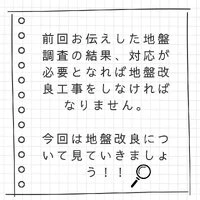 前回お伝えした地盤
調査の結果、対応が
必要となれば地盤改
良工事をしなければ
なりません。
今回は地盤改良につ
いて見ていきましょ
う！！